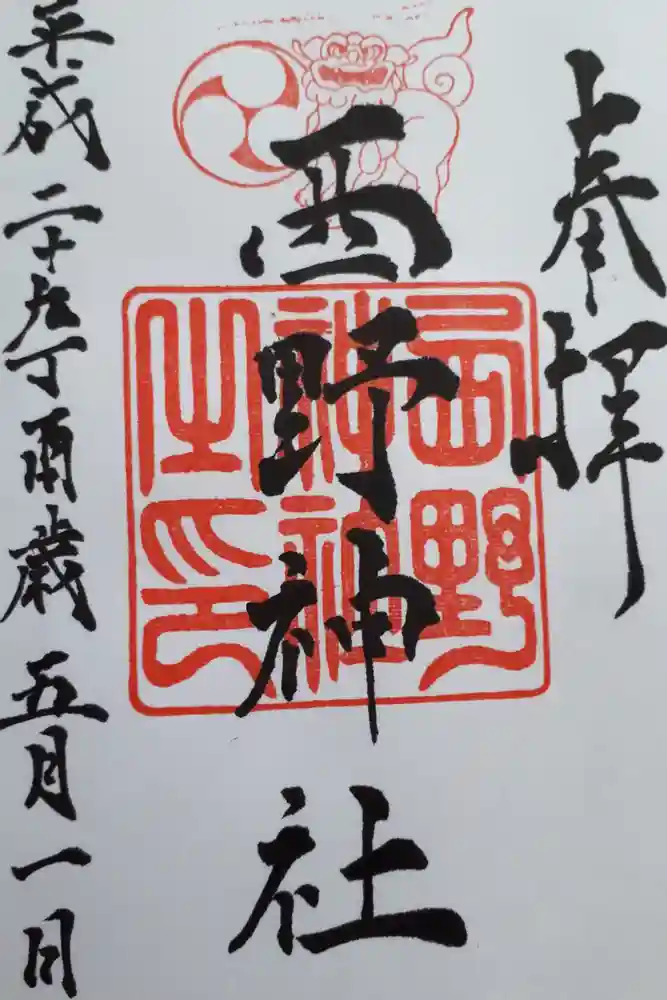 奉拝
西野神社
西野神社之印
平成二十九丁酉歳五月一日